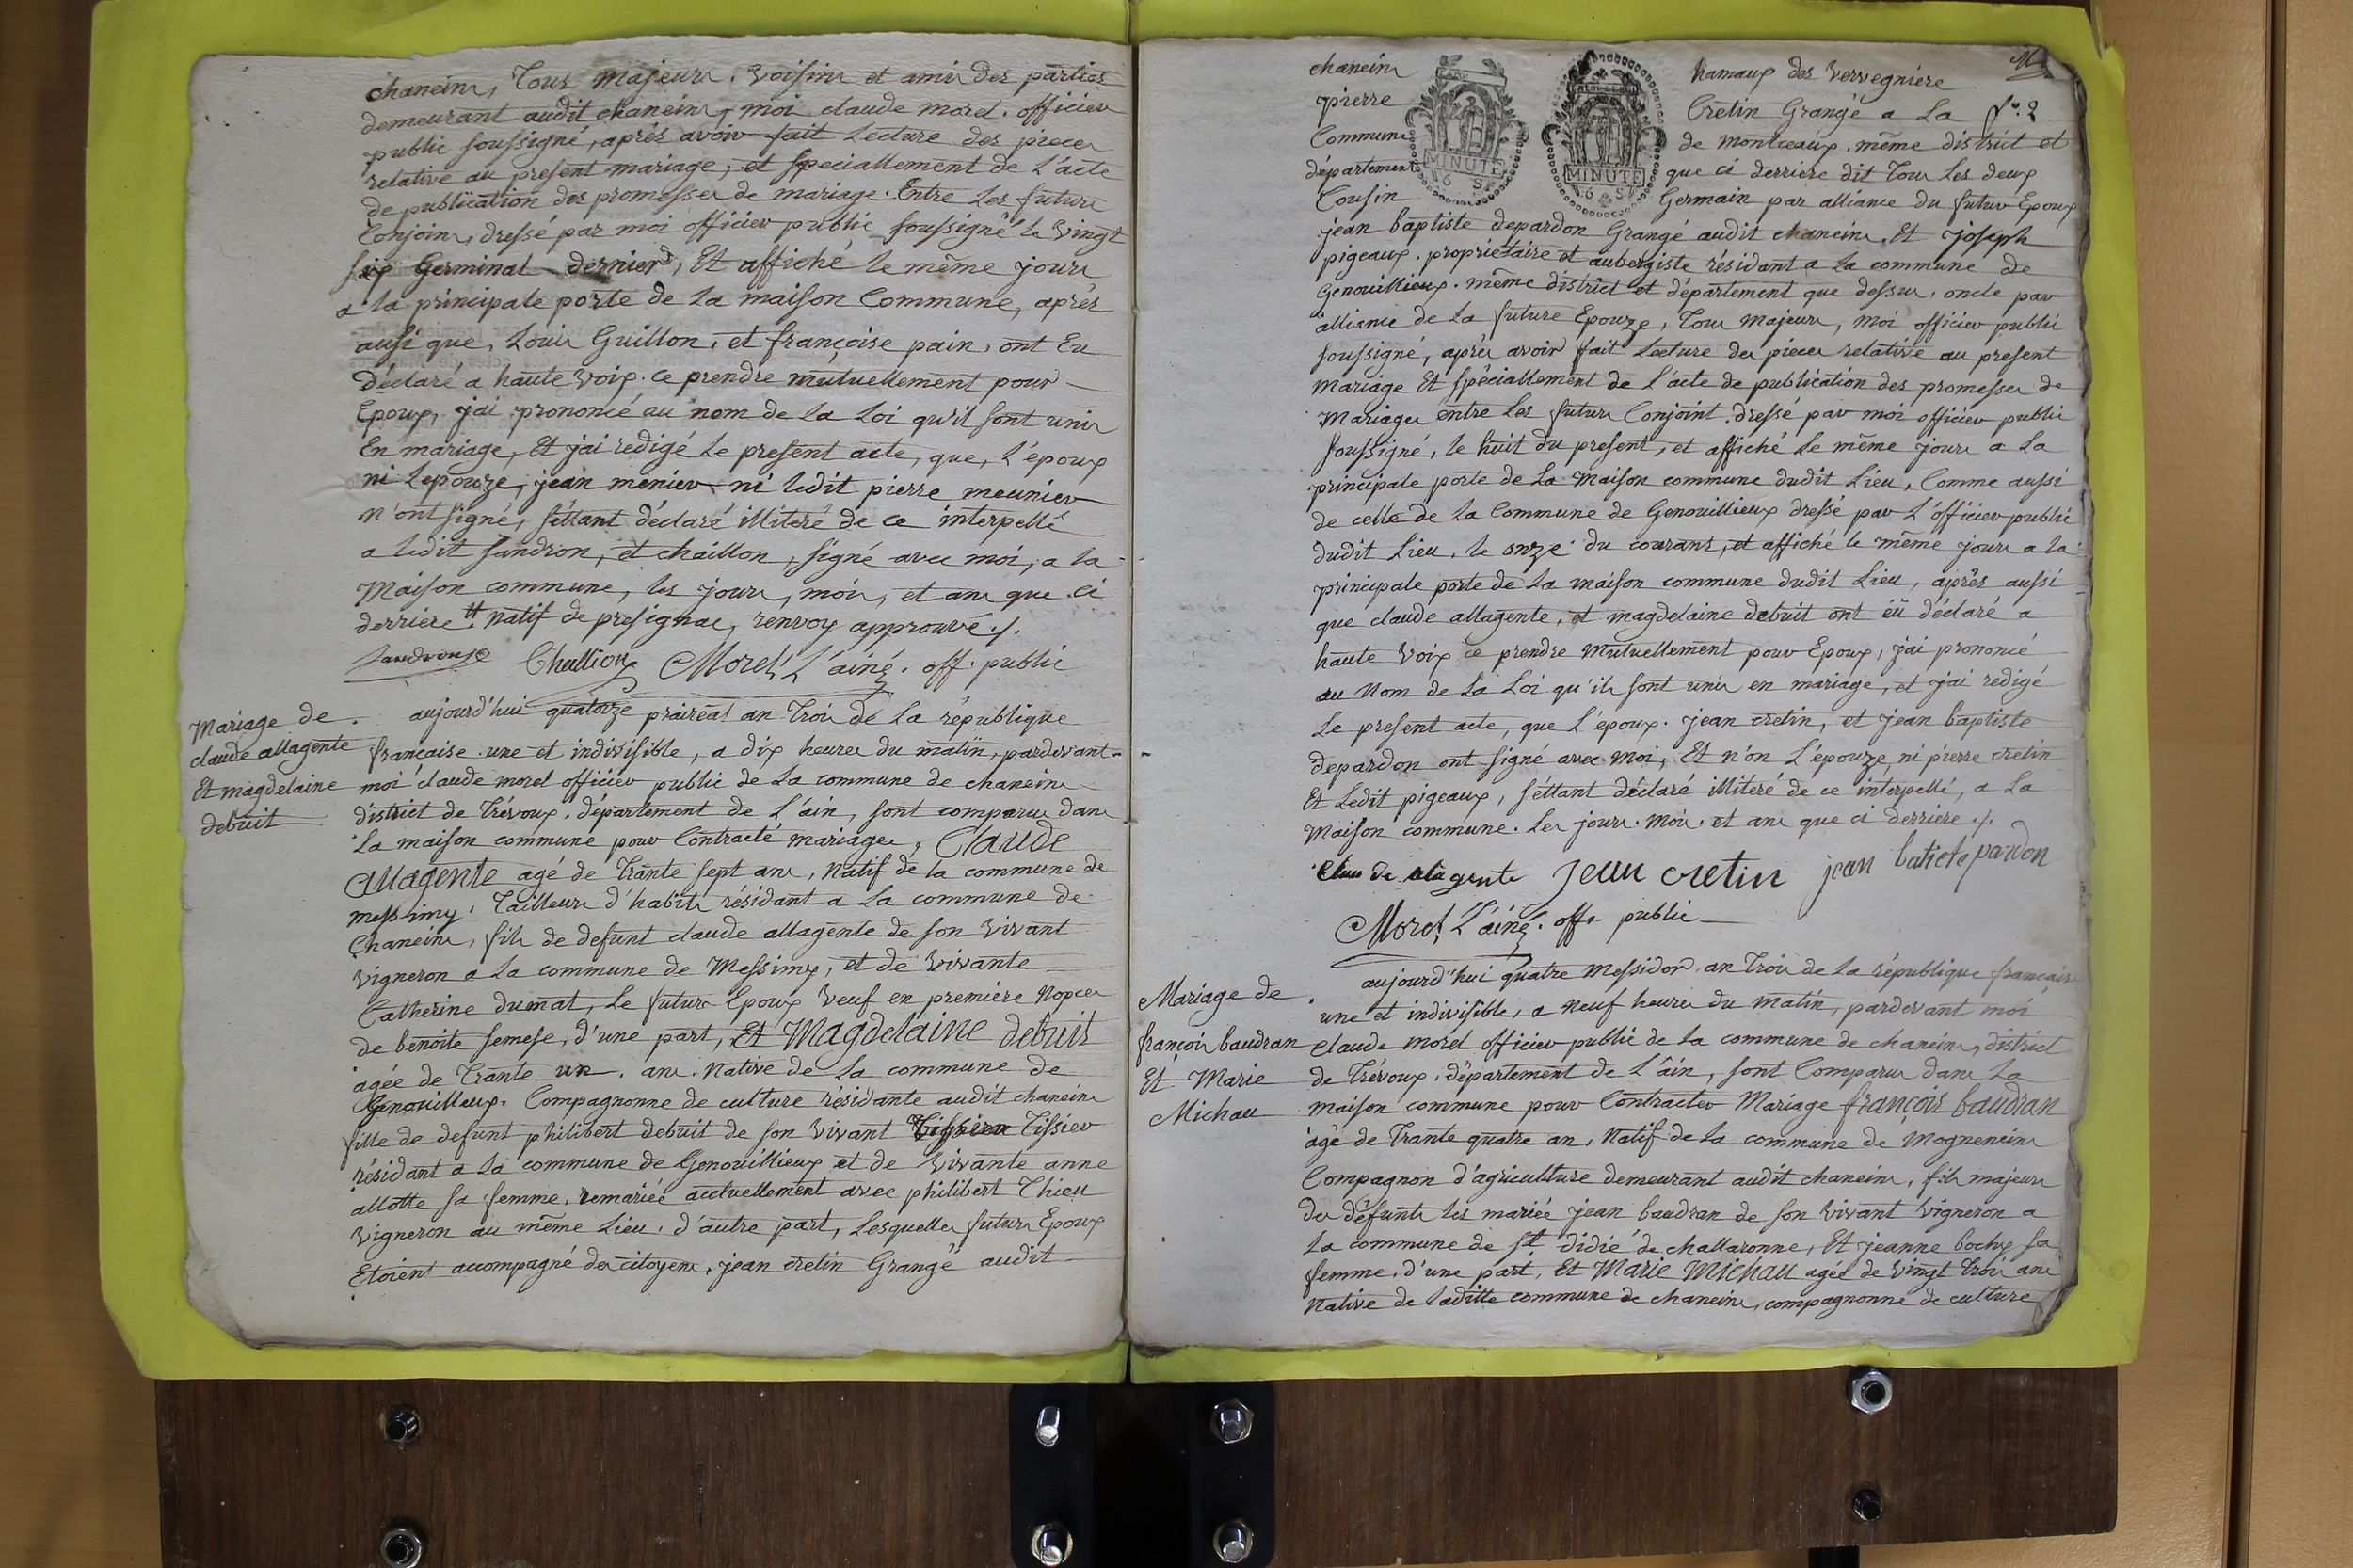 chaneins, Tous majeurs, voisins et amis des parties
demeurant audit chaneins, moi claude morel officier
public soussigné, aprés avoir fait Lecture des pieces
relative au present mariage, et speciallement de L'acte
de publication des promesses de mariage. Entre Les futurs
Conjoins, dressé par moi officier public soussigné le vingt
six Germinal dernier, Et affiché le même jours
a la principale porte de la maison Commune, aprés
ausi que, Louis Guillon, et françoise pain, ont Eu
déclaré a haute voix. ce prendre mutuellement pour
Epoux, jai prononcé au nom de La Loi qu'il sont unis
En mariage, Et jai redigé Le present acte, que, L'époux
ni Lepouze, jean menier ni ledit pierre meunier
n'ont signé, s'éttant déclaré illiteré de ce interpellé
a ledit sandron, et chaillon, signé avec moi, a la
Maison commune, les jours, mois, et ans que ci
derriere. tt natif de presignac, renvoy approuvé ./.
Challion Morel L'ainé. off. public
Mariage de
claude allagente
Et magdelaine
debuit
aujourd'hui quatorze praireal an Trois de La république
francaise une et indivisible, a dix heures du matin, pardevant
moi claude morel officier public de La commune de chaneins
district de Trévoux, département de L'ain, sont comparus dans
La maison commune pour Contracté mariages, Claude
Allagente agé de Trante sept ans, Natif de la commune de
messimy, Tailleurs d'habits résidant a La commune de
Chaneins, fils de defunt claude allagente de son vivant
vigneron a La commune de Messimy, et de vivante
Catherine dumat, Le futurs Epoux Veuf en premiere Nopces
de benoite semese, d'une part, Et Magdelaine debuit
agée de Trante un ans. Native de La commune de
Genouilleux. Compagnonne de culture résidante audit chaneins
fille de defunt philibert debuit de son vivant Tissier
résidant a La commune de Genouillieux et de vivante anne
allotte sa femme, remariée acctuellement avec philibert Thieu
vigneron au même Lieu, d'autre part, Lesquelles futurs Epoux
Etoient accompagné des citoyens, jean cretin Grangé audit
chaneins hamaux des vervegniere
pierre Cretin Grangé a La
Commune de montceaux, même district et
département que ci derriere dit Tous Les deux
Cousin Germain par alliance du futur Epoux
MINUTE
MINUTE
fo. 2
jean baptiste depardon Grangé audit chaneins, Et joseph
pigeaux, proprietaire et aubergiste résidant a La commune de
Genouillieux. même district et département que dessus, oncle par
alliance de La future Epouze, Tous majeurs, moi officier public
soussigné, aprés avoir fait Lecture des pieces relative au present
mariage Et spéciallement de L'acte de publication des promesses de
Mariages entre Les futurs Conjoint. dressé par moi officier public
soussigné, le huit du present, et affiché Le même jours a La
principale porte de La Maison commune dudit Lieu, Comme aussi
de celle de La Commune de Genouillieux dressé par L'officier public
dudit Lieu, le onze du courant, et affiché le même jours a la
principale porte de La maison commune dudit Lieu, aprés aussi
que claude allagente, et magdelaine debuit ont eü déclaré a
haute voix ce prendre mutuellement pour Epoux, jai prononcé
au Nom de La Loi qu'ils sont unis en mariage, et jai redigé
Le present acte, que L'epoux. jean cretin, et jean baptiste
depardon ont signé avec moi, Et n'on L'epouze, ni pierre cretin
Et Ledit pigeaux, s'éttant déclaré illiteré de ce interpellé, a La
Maison commune. Les jours. mois. et ans que ci derriere ./.
Clau de alagente jean cretin jean batiste pardon
Morel L'ainé. off. public
Mariage de
françois baudran
Et Marie
Michau
aujourd'hui quatre Messidor an Trois de La république francaise
une et indivisible, a Neuf heures du matin, pardevant moi
claude morel officier public de La commune de chaneins, district
de Trévoux, département de L'ain, sont Comparus dans La
maison commune pour Contracter Mariage françois baudran
agé de Trante quatre an, Natif de La commune de Mogneneins
Compagnon d'agriculture demeurant audit chaneins, fils majeurs
des défunts les mariés jean baudran de son vivant vigneron a
La commune de st didié de challaronne, Et jeanne bochy sa
femme, d'une part, Et Marie Michau agée de vingt Trois ans
Native de laditte commune de chaneins, compagnonne de culture